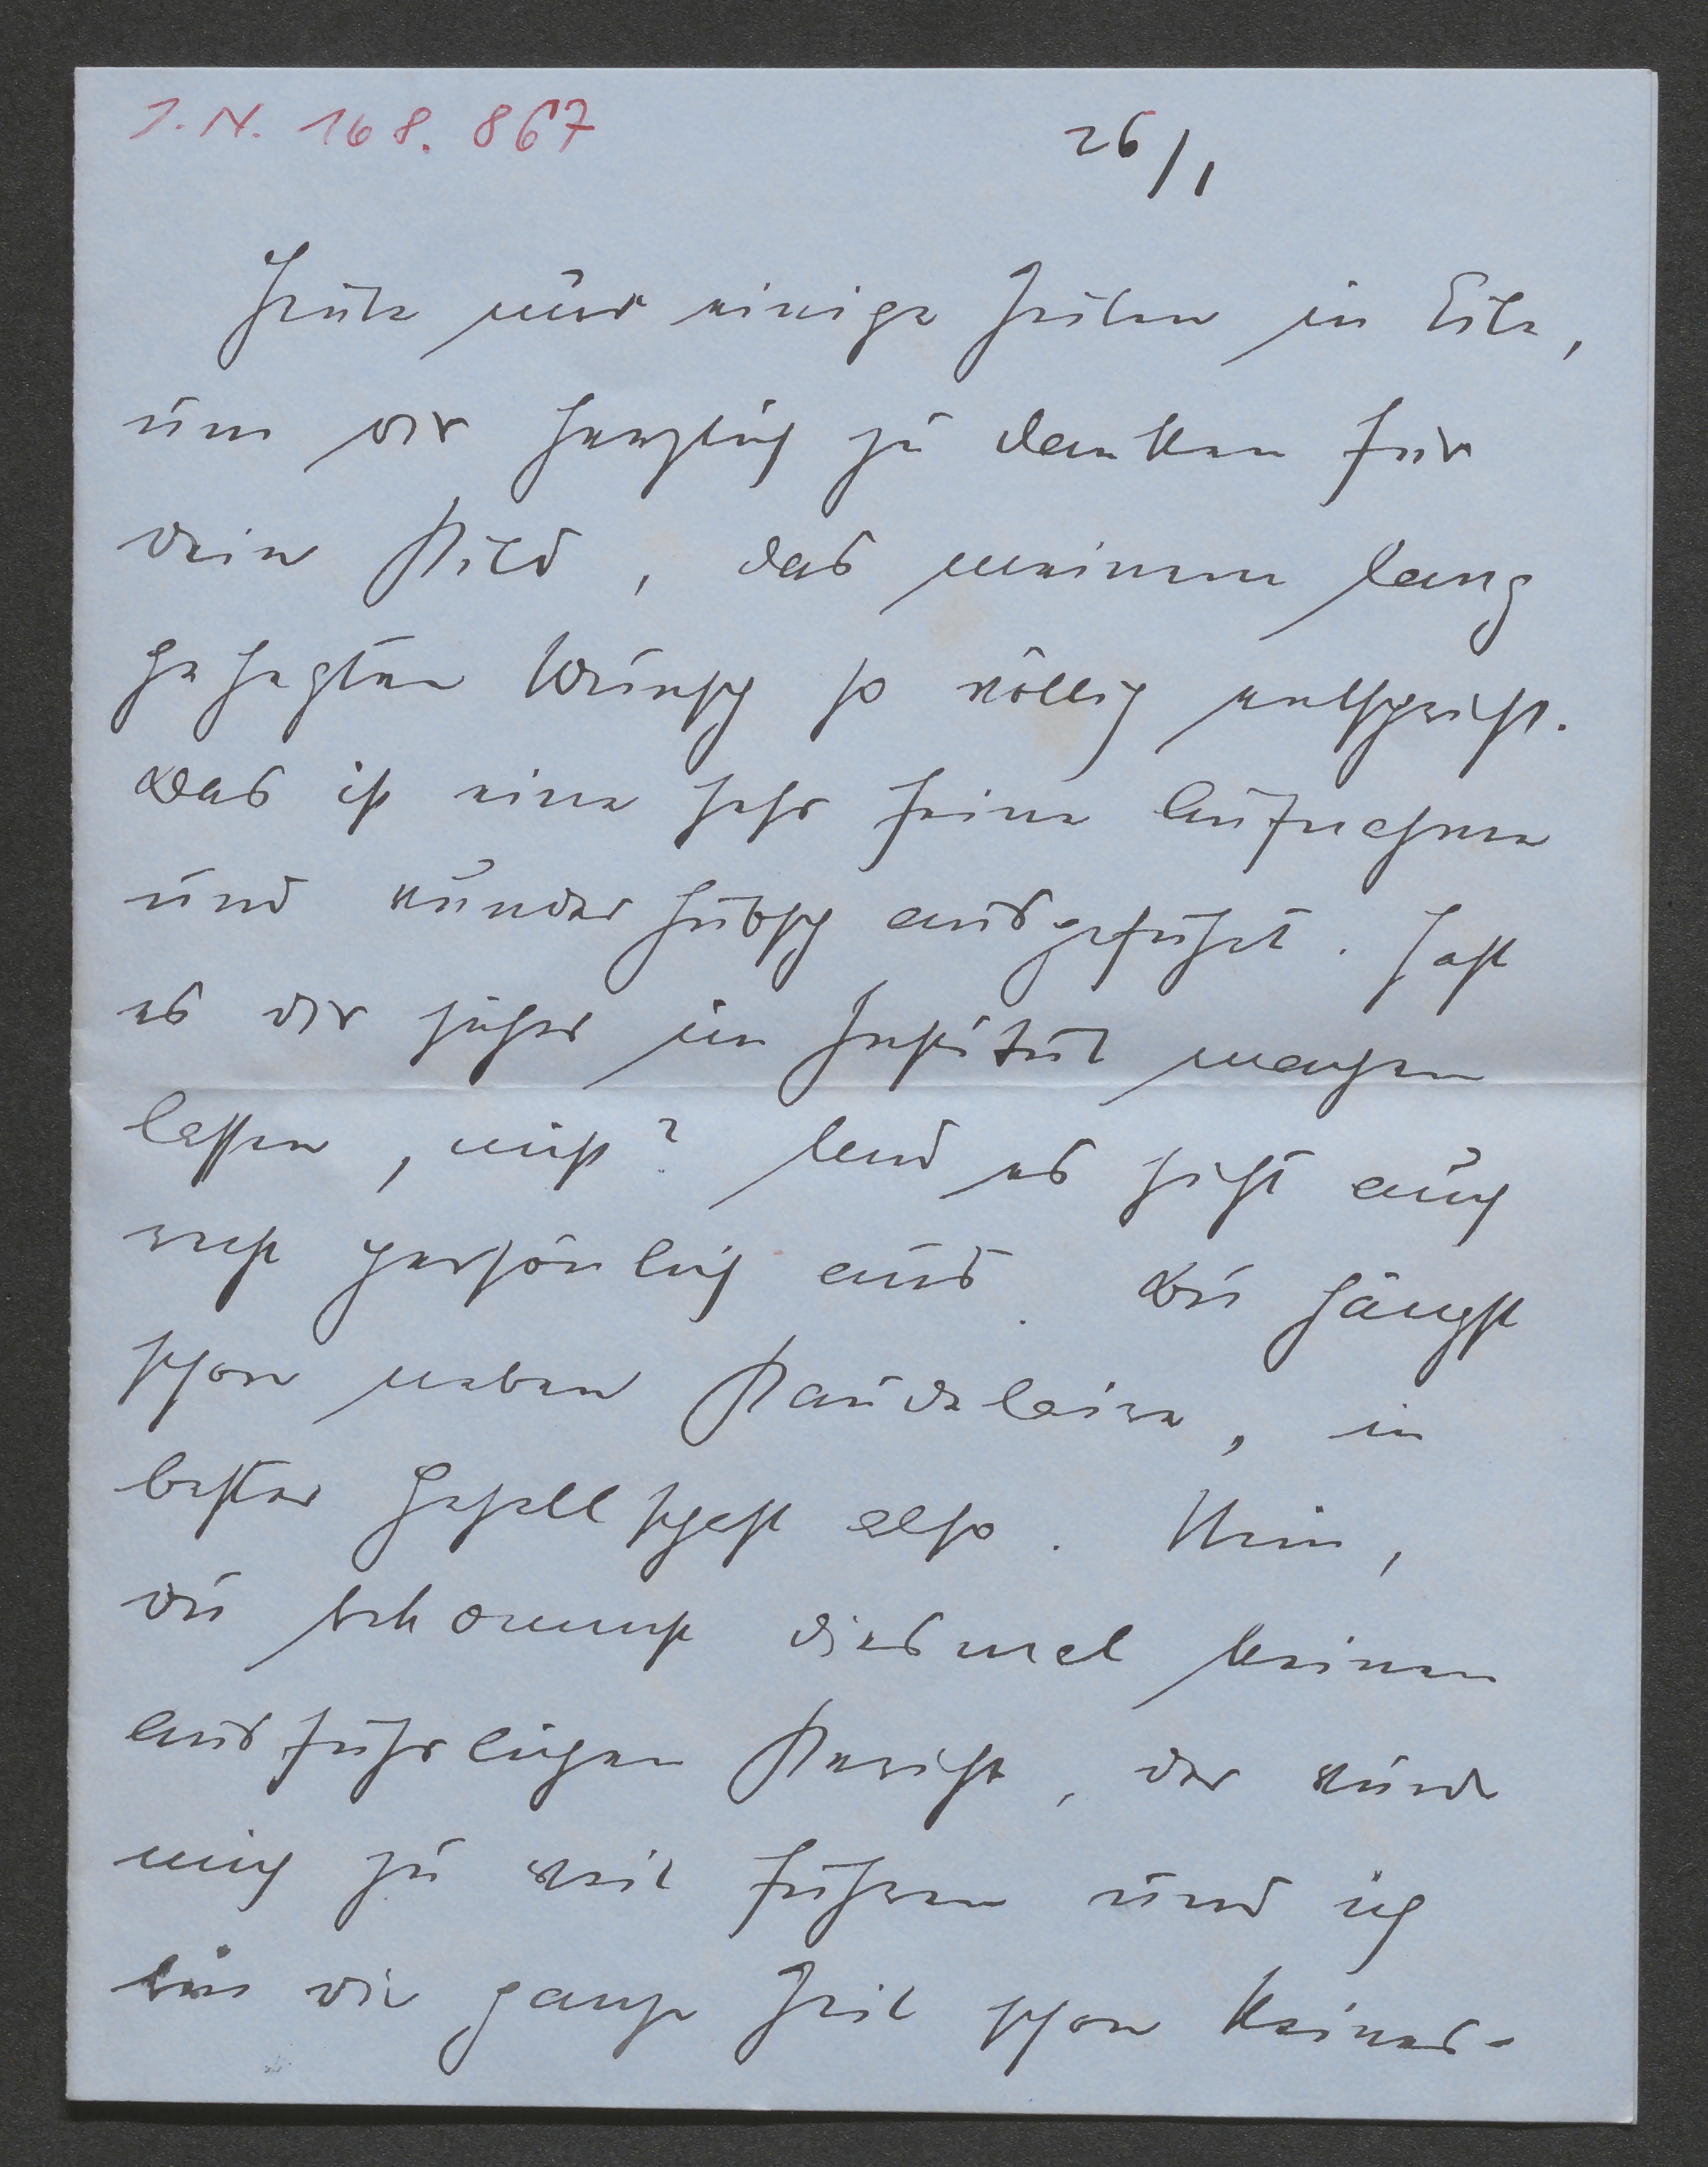 I.N. 168.867
26/1
Heute nur einige Zeilen in Eile,
um dir herzlich zu danken für
dein Bild, das meinem lang
gehegten Wunsch so völlig entspricht.
Das ist eine sehr feine Aufnahme
und wunderhübsch ausgeführt. Hast
es dir sicher im Institut machen
lassen, nicht? Und es sieht auch
recht persönlich aus. Du hängst
schon neben Baudelaire, in
bester Gesellschaft also. Nein,
du bekommst diesmal keinen
ausführlichen Bericht, der würde
mich zu weit führen und ich
bin die ganze Zeit schon keines-